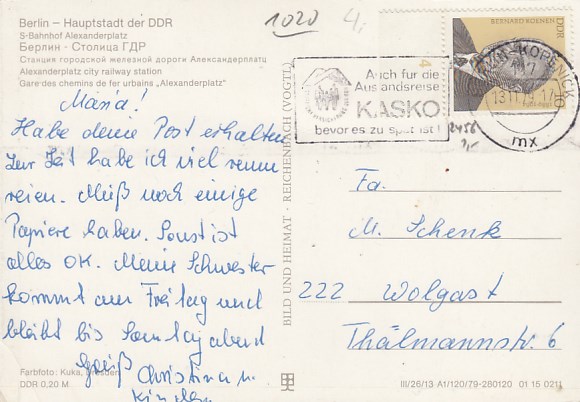 Berlin – Hauptstadt der DDR
S-Bahnhof Alexanderplatz
Берлин · Столица ГДР
Станция городской железной дороги Александерплатц
Alexanderplatz city railway station
Gare des chemins de fer urbains „Alexanderplatz“
1020
4,-
Maria!
Habe deine Post erhalten
Zur Zeit habe ich viel renne
reien. Muß noch einige
Papiere haben. Sonst ist
alles OK. Meine Schwester
kommt am Freitag und
bleibt bis Sonntag abend
Gruß
Christina u.
Kinder
Farbfoto: Kuka, Dresden
DDR 0,20 M
BILD UND HEIMAT · REICHENBACH (VOGTL)
Auch für die
Auslandsreise
KASKO
bevor es zu spät ist!
4
BERNARD KOENEN
DDR
KÖPENICK
13.11.
17
mx
2456
Fa.
M. Schenk
222 Wolgast
Thälmannstr. 6
III/26/13 A1/120/79-280120 01 15 0211